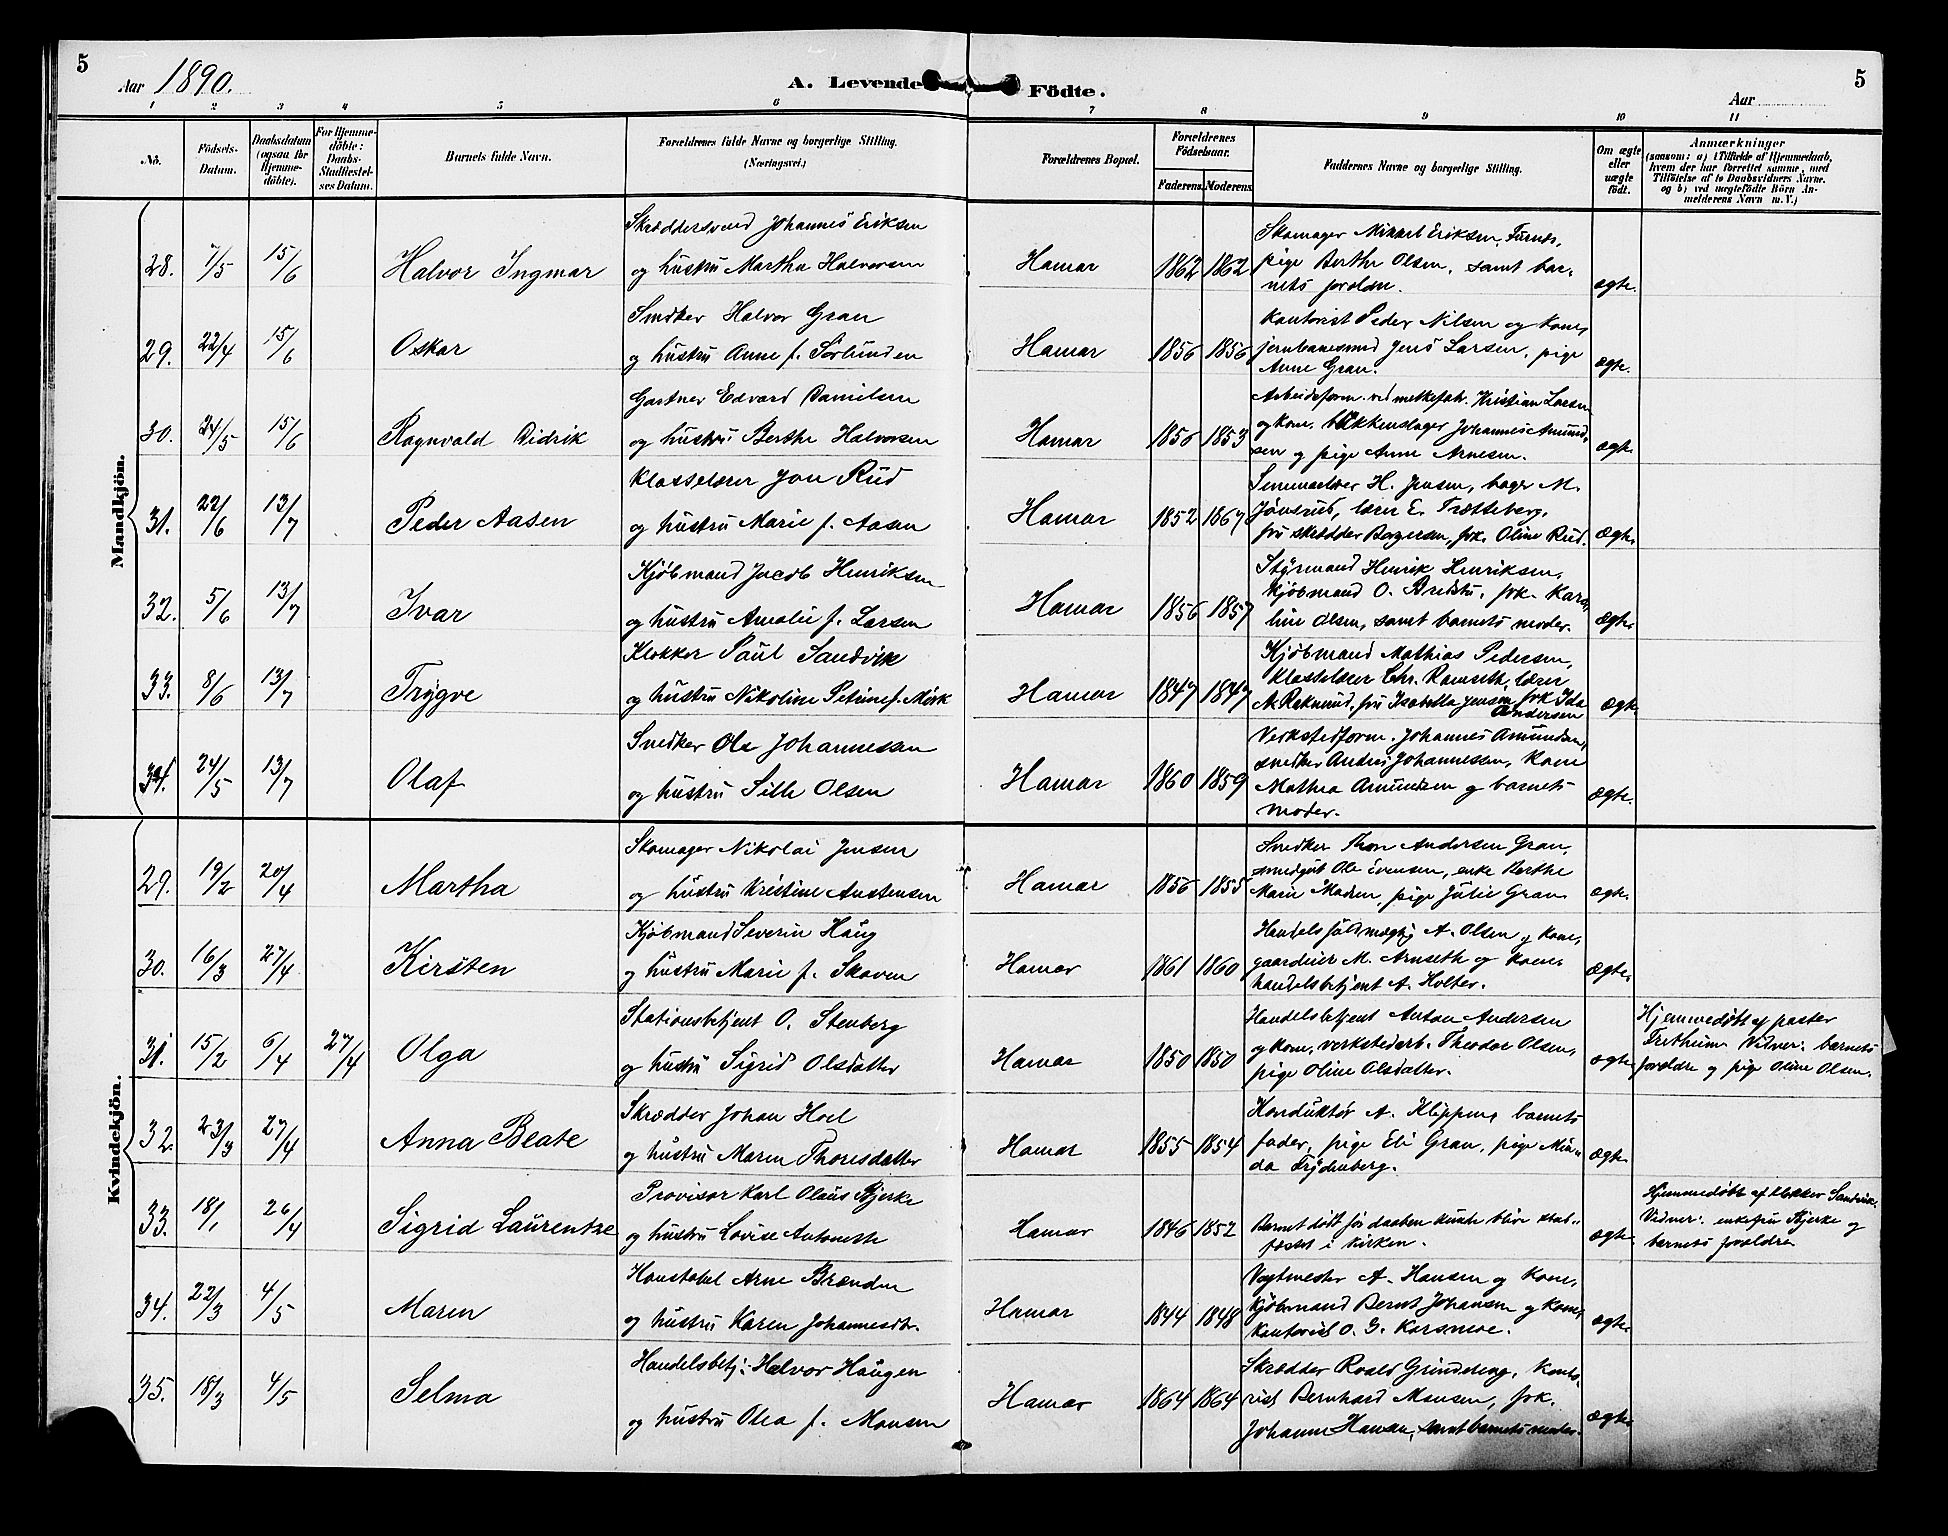 5
Aar 1890.
A. Levende Födte.
5
Aar
1 2 3 4 5 6 7 8 9 10 11
No.
Födsels-
Datum.
Daabsdatum
(ogsaa for
Hjemme-
döbte).
For Hjemme-
döbte:
Daabs-
Stadfæstel-
ses Datum.
Barnets fulde Navn.
Forældrenes fulde Navne og borgerlige Stilling.
(Næringsvei.)
Forældrenes Bopæl.
Forældrenes
Födselsaar.
Faderens. Moderens.
Faddernes Navne og borgerlige Stilling.
Om ægte
eller
uægte
födt.
Anmærkninger
(saasom: a) i Tilfælde af Hjemmedaab,
hvem der har forrettet samme, med
Tilföielse af to Daabsvidners Navne.
og b) ved uægtefödte Börn An-
melderens Navn m. V.)
Mandkjön.
28. 7/5 15/6 Halvor Ingmar
Skræddersvend Johannes Eriksen
og hustru Martha Halvorsen
Hamar 1862 1862
Skomager Mikkel Eriksen, Furnes,
pige Berthe Olsen, samt bar-
nets foreldre.
ægte.
29. 22/4 15/6 Oskar
Snedker Halvor Gran
og hustru Anne f. Sørlunden
Hamar 1856 1856
Kontorist Peder Nilsen og kone,
jernbanesmed Jens Larsen, pige
Anne Gran.
ægte.
30. 24/5 15/6 Ragnvald Didrik
Gartner Edvard Danielsen
og hustru Berthe Halvorsen
Hamar 1856 1853
Arbeidsform. ved melkefabr. Kristian Larsen
og kone, blikkenslager Johannes Amund-
sen og pige Anne Arnesen.
ægte
31. 22/6 13/7 Peder Aasen
Klasselærer Jon Rud
og hustru Marie f. Aasen
Hamar 1852 1867
H. Jensen, bager M.
Jønsrud, lærer E. Trætteberg,
fru skrædder Borgersen, frk. Oline Rud.
ægte
32. 5/6 13/7 Ivar
Kjøbmand Jacob Henriksen
og hustru Amalie f. Larsen
Hamar 1856 1857
Styrmand Henrik Henriksen,
kjøbmand O. frk. Karo-
line Olsen, samt barnets moder.
ægte
33. 8/6 13/7 Trygve
Klokker Paul Sandvik
og hustru Nikoline Petrine f. Mørk
Hamar 1847 1847
Kjøbmand Mathias Pedersen,
klasselærer Chr. Ramseth, lærer
N. fru Isabella Jensen, frk Ida
Andersen
ægte
34. 24/5 13/7 Olaf
Snedker Ole Johannessen
og hustru Sille Olsen
Hamar 1860 1859
Verkstedform. Johannes Amundsen,
snedker Andrus Johannessen, kone
Mathea Amundsen og barnets
moder.
ægte.
Kvindekjön.
29. 19/2 20/4 Martha
Skomager Nikolai Jensen
og hustru Kristine Austensen
Hamar 1856 1855
Snedker Thor Andersen Gran,
smedgut Ole Evensen, enke Berthe
Marie Madsen, pige Julie Gran
ægte.
30. 16/3 27/4 Kirsten
Kjøbmand Severin Haug
og hustru Marie f. Skaven
Hamar 1861 1860
Handelsfuldmægtig A. Olsen og kone,
gaardeier M. Arnseth og kone
handelsbetjent A. Holter.
ægte
31. 15/2 6/4 27/4 Olga
Stationsbetjent O. Stenberg
og hustru Sigrid Olsdatter
Hamar 1850 1850
Handelsbetjent Anton Andersen
og kone, verkstedarb. Theodor Olsen,
pige Oline Olsdatter.
ægte
Hjemmedøbt af pastor
Fretheim Vidner: barnets
foreldre og pige Oline Olsen.
32. 23/3 27/4 Anna Beate
Skrædder Johan Hoel
og hustru Maren Thoresdatter
Hamar 1855 1854
Konduktør A. Klippen, barnets
fader, pige Eli Gran, pige Min-
da Frydenberg.
ægte
33. 18/1 26/4 Sigrid Laurentze
Provisor Karl Olaus Bjerke
og hustru Lovise Antonette
Hamar 1846 1852
Barnet dødt før daaben kunde blive stad-
fæstet i kirken.
ægte.
Hjemmedøbt af klokker Sandvik.
Vidner: enkefru Bjerke og
barnets foreldre
34. 22/3 4/5 Maren
Konstabel Arne Brænden
og hustru Karen Johannesdt.
Hamar 1844 1848
Vogtmester A. Hansen og kone,
kjøbmand Bernt Johansen og kone,
kontorist O. G. Korsmoe.
ægte.
35. 18/3 4/5 Selma
Handelsbetj. Halvor Haugen
og hustru Olea f. Monsen
Hamar 1864 1864
Skrædder Roald Grindeng, konto-
rist Bernhard Monsen, frk.
Johanne Hansen, samt barnets moder.
ægte